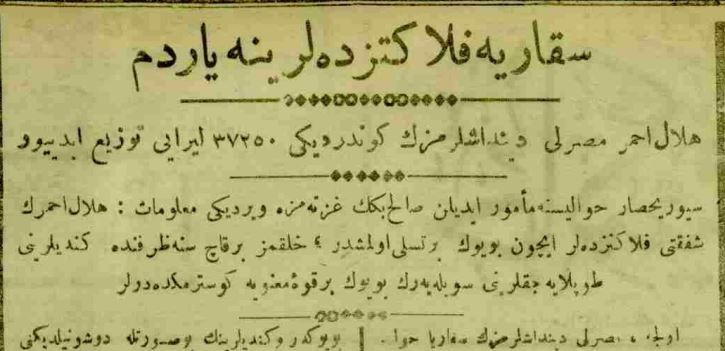 سقاریه فلاكتزده‌لرینه یاردم
هلال احمر مصرلی دینداشلرمزك كوندردیكی ٣٧٢٥٠ لیرایی توزیع ایدییور
سیوریحصار حوالیسنه مأمور ایدیلن صالح بكك غزته‌مزه ویردیكی معلومات : هلال احمرك
شفقتی فلاكتزده‌لر ایچون بویوك بر تسلی اولمشدر ؛ خلقمز بر قاچ سنه ظرفنده كندیلرینی
طوپلایه جقلرینی سویلیه‌رك بویوك بر قوهٔ معنویه كوسترمكده‌درلر
مصرلی دینداشلرمزك سقاریا حوا
بو صورتله دوشونیلدیكنی